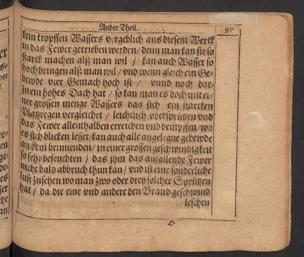 Ander Theil.
97
kein tropffen Wassers vergeblich aus diesem Werck
in das Fewer getrieben werden / denn man kan sie so
starck machen als man wil / kan auch Wasser so
hoch bringen als man wil / und wenn gleich ein Ge-
vier Gemach hoch ist / unnd noch dar-
zu ein hohes Dach hat / so kan man es doch mit ei-
ner grossen menge Wassers das sich ein starcken
Platzregen vergleichet / leichtlich überspritzen und
das Fewer allenthalben erreichen und dempffen / wo
es sich blicken lesset / kan auch alle angelegne gebewde
brennenden / in einer grossen geschwindigkeit
so sehr befeuchten / das ihm das anfallende Fewer
nicht bald abbruch thun kan / und ist eine sonderliche
lust zusehen wo man zwo oder drey solcher Sprützen
hat / da die eine und andere den Brand geschwind
leschen